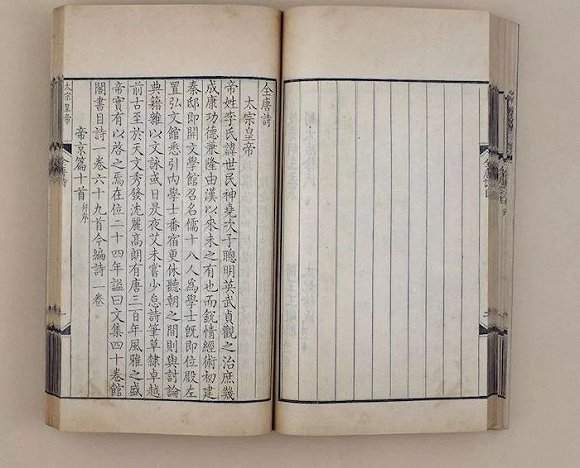 全唐詩
太宗皇帝
帝姓李氏諱世民神堯次子聰明英武貞觀之治庶幾
成康功德兼隆由漢以來未之有也而銳情經術初建
秦邸即開文學館召名儒十八人為學士既即位殿左
置弘文館悉引內學士番宿更休聽朝之間則與討論
典籍雜以文詠或日昃夜艾未嘗少怠詩筆草隸卓越
前古至於天文秀發沈麗高朗有唐三百年風雅之盛
帝實有以啟之焉在位二十四年諡曰文集四十卷館
閣書目詩一卷六十九首今編詩一卷
帝京篇十首 并序
太宗皇帝
全唐詩